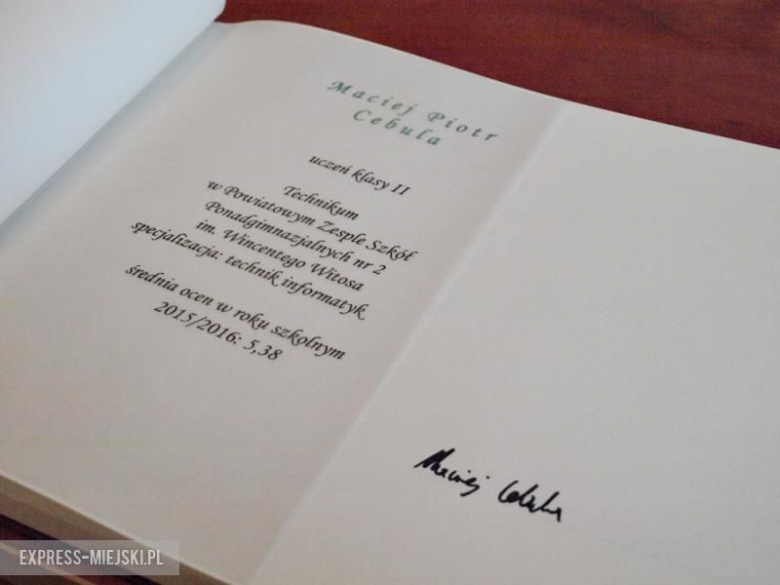 Maciej Piotr
Cebula
uczeń klasy II
Technikum
w Powiatowym Zesple Szkół
Ponadgimnazjalnych nr 2
im. Wincentego Witosa
specjalizacja: technik informatyk
średnia ocen w roku szkolnym
2015/2016: 5,38
Maciej Cebula
EXPRESS-MIEJSKI.PL